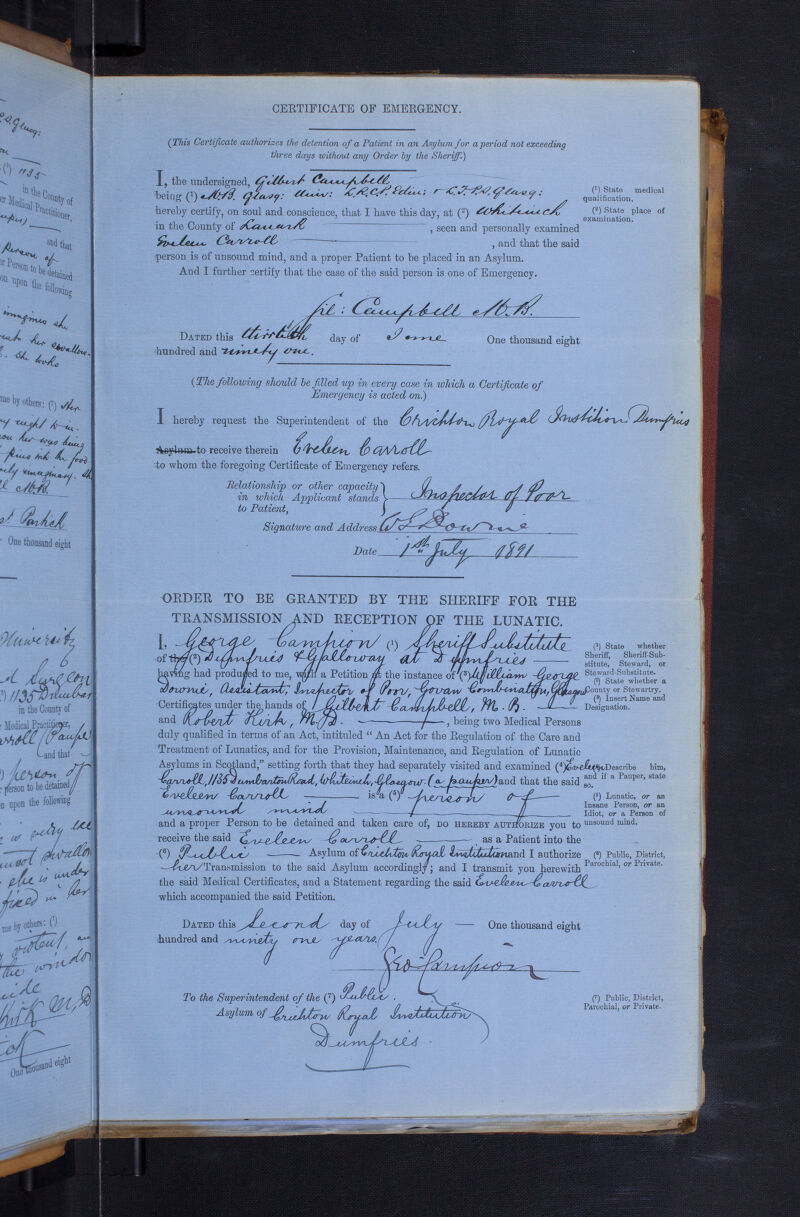 CERTIFICATE OF EMERGENCY.
(This Certificate authorizes the detention of a Patient in an Asylum for a period not exceeding
three days without any Order by the Sheriff.)
I, the undersigned, Gilbert Campbell
being (¹) M.B. Glasg: Univ: L.R.C.P. Edin: & L.F.P.S. Glasg:
hereby certify, on soul and conscience, that I have this day, at (²) Whiteinch
in the County of Lanark , seen and personally examined
Eveleen Carroll , and that the said
person is of unsound mind, and a proper Patient to be placed in an Asylum.
And I further certify that the case of the said person is one of Emergency.
(¹) State medical
qualification.
(²) State place of
examination.
Gil: Campbell M.B.
DATED this thirtieth day of June One thousand eight
hundred and ninety one.
(The following should be filled up in every case in which a Certificate of
Emergency is acted on.)
I hereby request the Superintendent of the Crichton Royal Instition Dumfries
Asylum to receive therein Eveleen Carroll
to whom the foregoing Certificate of Emergency refers.
Relationship or other capacity
in which Applicant stands
to Patient,
Inspector of Poor
Signature and Address W G Downie
Date 1st July 1891
ORDER TO BE GRANTED BY THE SHERIFF FOR THE
TRANSMISSION AND RECEPTION OF THE LUNATIC.
I, George Campion (¹) Sheriff Substitute
of the (²) Dumfries & Galloway at Dumfries
having had produced to me, with a Petition at the instance of (³) William George
Downie, Assistant, Inspector of Poor, Govan Combination, Glasgow
Certificates under the hands of Gilbert Campbell, M.B.
and Robert Kirk, M.D. , being two Medical Persons
duly qualified in terms of an Act, intituled “ An Act for the Regulation of the Care and
Treatment of Lunatics, and for the Provision, Maintenance, and Regulation of Lunatic
Asylums in Scotland,” setting forth that they had separately visited and examined (⁴) Eveleen
Carroll, 1135 Dumbarton Road, Whiteinch, Glasgow (a pauper) and that the said
Eveleen Carroll is a (⁵) person of
unsound mind
and a proper Person to be detained and taken care of, DO HEREBY AUTHORIZE you to
receive the said Eveleen Carroll as a Patient into the
(⁶) Public Asylum of Crichton Royal Institution and I authorize
her Transmission to the said Asylum accordingly; and I transmit you herewith
the said Medical Certificates, and a Statement regarding the said Eveleen Carroll
which accompanied the said Petition.
(¹) State whether
Sheriff, Sheriff-Sub-
stitute, Steward, or
Steward-Substitute.
(²) State whether a
County or Stewartry.
(³) Insert Name and
Designation.
Describe him,
and if a Pauper, state
so.
(⁵) Lunatic, or an
Insane Person, or an
Idiot, or a Person of
unsound mind.
(⁶) Public, District,
Parochial, or Private.
DATED this Second day of July One thousand eight
hundred and ninety one years.
Geo Campion
To the Superintendent of the (⁷) Public
Asylum of Crichton Royal Institution
Dumfries.
(⁷) Public, District,
Parochial, or Private.
(²) 1135
in the County of
Medical Practitioner,
and that
person of
Person to be detained
upon the following
imagines she
swallow
She looks
me by others: (²) Her
One thousand eight
University
Surgeon
1135 Dumbar
in the County of
Medical Practitioner,
and that
person of
person to be detained
upon the following
swallow
she is under
fixed in her
me by others: (²)
violent,
the window
Kirk M.D
One thousand eight